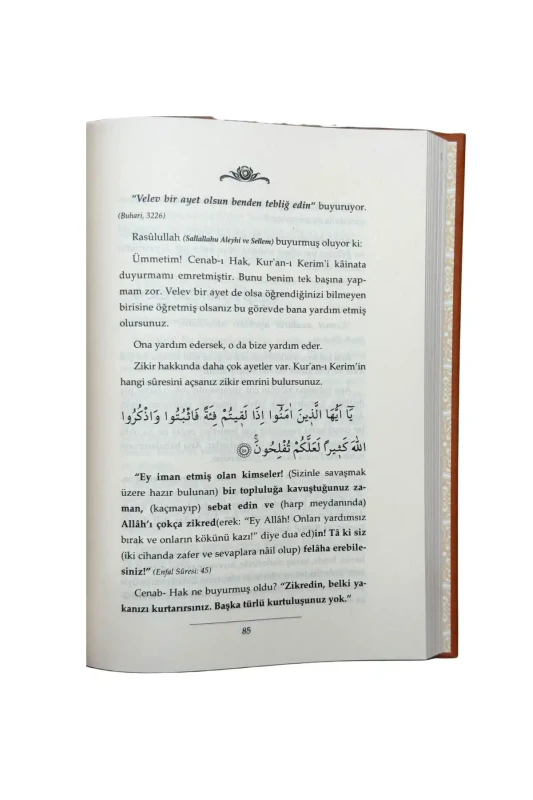 "Velev bir ayet olsun benden tebliğ edin" buyuruyor.
(Buhari, 3226)
Rasûlullah (Sallallahu Aleyhi ve Sellem) buyurmuş oluyor ki:
Ümmetim! Cenab-ı Hak, Kur'an-ı Kerim'i kâinata
duyurmamı emretmiştir. Bunu benim tek başına yap-
mam zor. Velev bir ayet de olsa öğrendiğinizi bilmeyen
birisine öğretmiş olsanız bu görevde bana yardım etmiş
olursunuz.
Ona yardım edersek, o da bize yardım eder.
Zikir hakkında daha çok ayetler var. Kur'an-ı Kerim'in
hangi sûresini açsanız zikir emrini bulursunuz.
يَٓا اَيُّهَا الَّذ۪ينَ اٰمَنُٓوا اِذَا لَق۪يتُمْ فِئَةً فَاثْبُتُوا وَاذْكُرُوا
اللّٰهَ كَث۪يرًا لَعَلَّكُمْ تُفْلِحُونَۚ ﴿٤٥﴾
"Ey iman etmiş olan kimseler! (Sizinle savaşmak
üzere hazır bulunan) bir topluluğa kavuştuğunuz za-
man, (kaçmayıp) sebat edin ve (harp meydanında)
Allâh'ı çokça zikred(erek: "Ey Allâh! Onları yardımsız
bırak ve onların kökünü kazı!" diye dua ed)in! Tâ ki siz
(iki cihanda zafer ve sevaplara nâil olup) felâha erebile-
siniz!" (Enfal Sûresi: 45)
Cenab- Hak ne buyurmuş oldu? "Zikredin, belki ya-
kanızı kurtarırsınız. Başka türlü kurtuluşunuz yok."
85